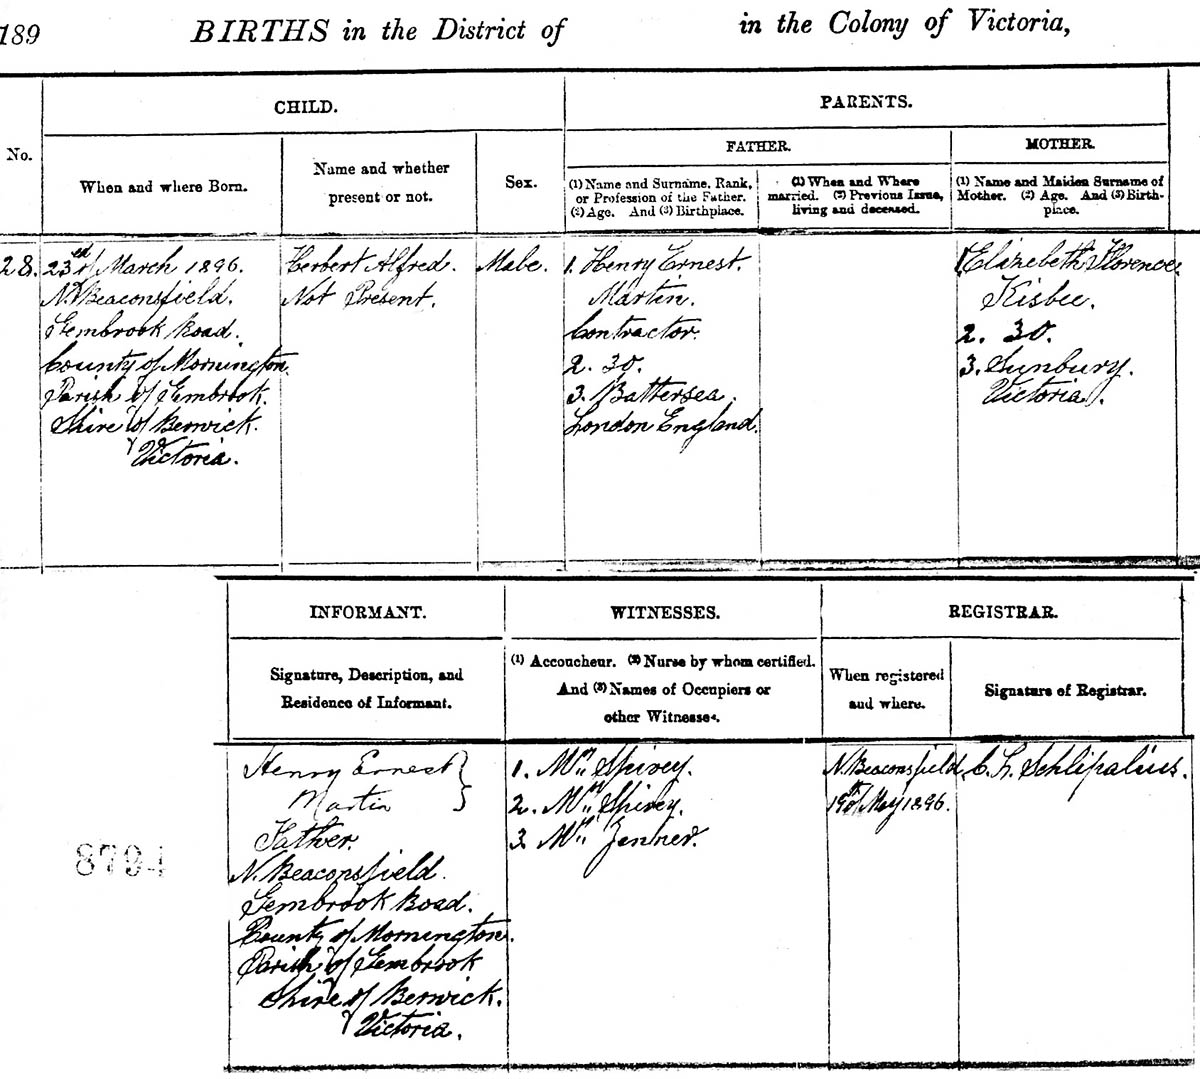 189 BIRTHS in the District of in the Colony of Victoria,
CHILD.
PARENTS.
No.
FATHER.
MOTHER.
When and where Born.
Name and whether
present or not.
Sex.
(1) Name and Surname, Rank,
or Profession of the Father.
(2) Age. And (3) Birthplace.
(1) When and Where
married. (2) Previous Issue,
living and deceased.
(1) Name and Maiden Surname of
Mother. (2) Age. And (3) Birth-
place.
28.
23rd of March 1896.
N. Beaconsfield.
Gembrook Road.
County of Mornington.
Parish of Gembrook.
Shire of Berwick.
Victoria.
Herbert Alfred.
Not Present.
Male.
1. Henry Ernest.
Martin.
Contractor.
2. 30.
3. Battersea.
London England.
1 Elizabeth Florence
Kisbee.
2. 30.
3. Sunbury.
Victoria.
INFORMANT.
WITNESSES.
REGISTRAR.
Signature, Description, and
Residence of Informant.
(1) Accoucheur. (2) Nurse by whom certified.
And (3) Names of Occupiers or
other Witnesses.
When registered
and where.
Signature of Registrar.
Henry Ernest
Martin
Father.
N. Beaconsfield.
Gembrook Road.
County of Mornington.
Parish of Gembrook
Shire of Berwick.
Victoria.
1. Mrs. Spivey.
2. Mrs. Spivey.
3 Mrs. Jenner.
N. Beaconsfield
19th of May 1896.
C. L. Schlipalius.
8794